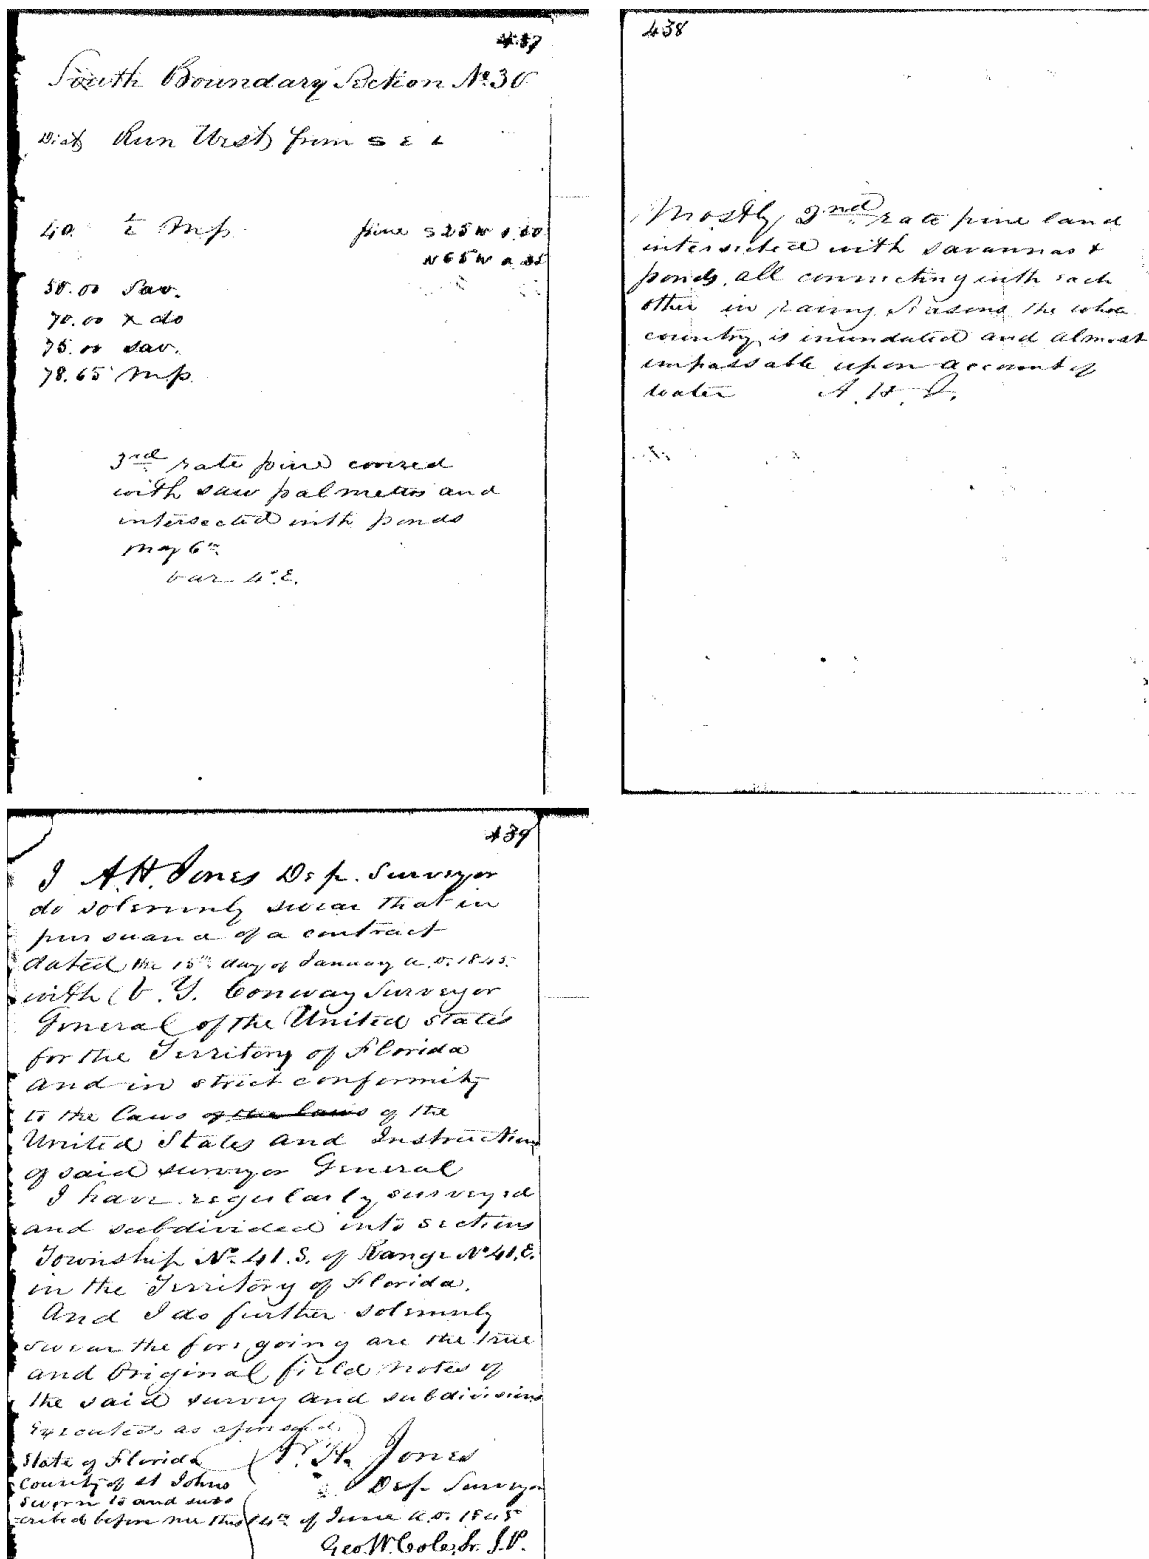 437
South Boundary Section No. 30
Dist Run West from S E C
40. ½ M.p. pine S 25 W 0.50
N 65 W 0.35
50.00 Sav.
70.00 X do
75.00 Sav.
78.65 M.p.
3rd rate pine covered
with saw palmetto and
intersected with ponds
May 6th
Var 4° E.
438
Mostly 2nd rate pine land
intersected with savannas &
ponds, all connecting with each
other in rainy seasons the whole
country is inundated and almost
impassable upon account of
water A. H. J.
439
I A. H. Jones Dep. Surveyor
do solemnly swear that in
pursuance of a contract
dated the 15th day of January A.D. 1845.
with V. Y. Conway Surveyor
General of the United States
for the Territory of Florida
and in strict conformity
to the laws of the laws of the
United States and Instructions
of said surveyor General
I have regularly surveyed
and subdivided into sections
Township No. 41. S. of Range No 41. E.
in the Territory of Florida.
And I do further solemnly
swear the foregoing are the true
and Original field notes of
the said survey and subdivisions
executed as aforesaid.
State of Florida A. H. Jones
County of St Johns Dep. Surveyor
Sworn to and subs
cribed before me this 14th of June A.D. 1845
Geo. W. Cole, Jr. J.P.